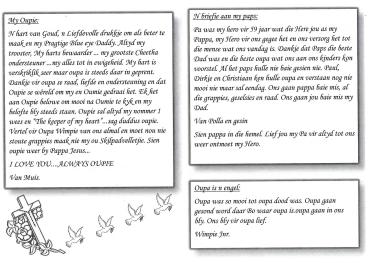 My Oupie:
N hart van Goud, n Liefdevolle drukkie om als beter te
maak en my Pragtige Blue eye Daddy. Altyd my
trooster, My harts bewaarder ... my grootste Cheetha
ondersteuner ...my alles tot in ewigheid. My hart is
verskriklik seer maar oupa is steeds daar in geprent.
Dankie vir oupa se raad, liefde en ondersteuning en dat
Oupie se wêreld om my en Oumie gedraai het. Ek het
aan Oupie belowe om mooi na Oumie te kyk en my
belofte bly steeds staan. Oupie sal altyd my nommer 1
wees en "The keeper of my heart"...seg duddus oupie.
Vertel vir Oupa Wimpie van ons almal en moet non nie
stoute grappies maak nie my ou Skilpadvolletjie. Sien
oupie weer by Pappa Jesus...
I LOVE YOU...ALWAYS OUPIE
Van Muis.
N briefie aan my papa:
Pa was my hero vir 39 jaar wat die Here jou as my
Pappa, my Hero vir ons gegee het en ons versorg het tot
die mense wat ons vandag is. Dankie dat Paps die beste
Dad was en die beste oupa wat ons aan ons kinders kon
voorstel. Al het paps hulle nie baie gesien nie. Paul,
Dirkie en Christiaan ken hulle oupa en verstaan nog nie
mooi nie maar sal eendag. Ons gaan pappa baie mis, al
die grappies, gesels en raad. Ons gaan jou baie mis my
Dad.
Van Polla en gesin
Sien pappa in die hemel. Lief jou my Pa vir altyd tot ons
weer ontmoet my Hero.
Oupa is n engel:
Oupa was so mooi tot oupa dood was. Oupa gaan
gesond word daar Bo waar oupa is.oupa gaan in ons
bly. Ons bly vir oupa lief.
Wimpie Jnr.